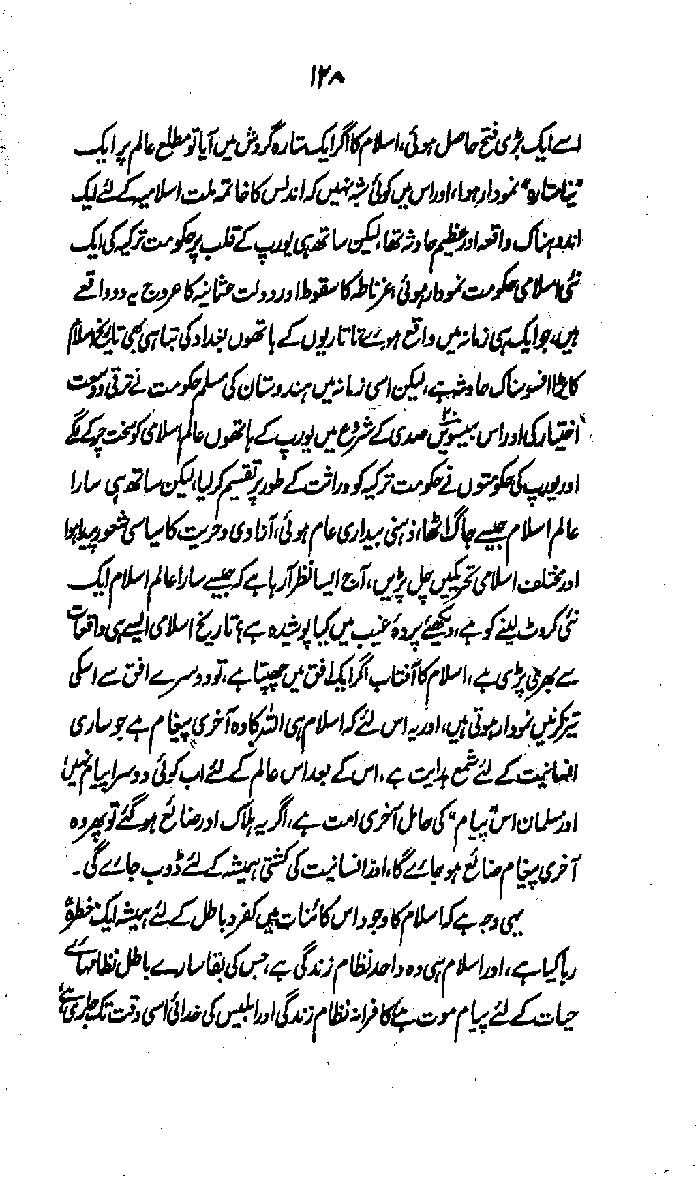 ۱۲۸
اسے ایک بڑی فتح حاصل ہوئی، اسلام کا اگر ایک ستارہ گردش میں آیا تو مطلع عالم پر ایک
"نیا ستارہ" نمودار ہوا، اور اس میں کوئی شبہ نہیں کہ اندلس کا خاتمہ ملت اسلامیہ کے لئے ایک
اندوہناک واقعہ اور عظیم حادثہ تھا، لیکن ساتھ ہی یورپ کے قلب پر حکومت ترکیہ کی ایک
نئی اسلامی حکومت نمودار ہوئی، غرناطہ کا سقوط اور دولت عثمانیہ کا عروج یہ دو واقعے
ہیں، جو ایک ہی زمانہ میں واقع ہوئے تاتاریوں کے ہاتھوں بغداد کی تباہی بھی تاریخ اسلام
کا بڑا افسوسناک حادثہ ہے، لیکن اسی زمانہ میں ہندوستان کی مسلم حکومت نے ترقی و وسعت
اختیار کی اور اس بیسویں ۲۰ صدی کے شروع میں یورپ کے ہاتھوں عالم اسلامی کو سخت چرکے لگے
اور یورپ کی حکومتوں نے حکومت ترکیہ کو وراثت کے طور پر تقسیم کر لیا، لیکن ساتھ ہی سارا
عالم اسلام جیسے جاگ اٹھا، ذہنی بیداری عام ہوئی، آزادی و حریت کا سیاسی شعور پیدا ہوا
اور مختلف اسلامی تحریکیں چل پڑیں، آج ایسا نظر آ رہا ہے کہ جیسے سارا عالم اسلام ایک
نئی کروٹ لینے کو ہے، دیکھئے پردۂ غیب میں کیا پوشیدہ ہے؟ تاریخ اسلامی ایسے ہی واقعات
سے بھری پڑی ہے، اسلام کا آفتاب اگر ایک افق میں چھپتا ہے، تو دوسرے افق سے اسکی
تیز کرنیں نمودار ہوتی ہیں، اور یہ اس لئے کہ اسلام ہی اللہ کا وہ آخری پیغام ہے جو ساری
انسانیت کے لئے شمع ہدایت ہے، اس کے بعد اس عالم کے لئے اب کوئی دوسرا پیام نہیں
اور مسلمان اس "پیام" کی حامل آخری امت ہے، اگر یہ ہلاک اور ضائع ہو گئے تو پھر وہ
آخری پیغام ضائع ہو جائے گا، اور انسانیت کی کشتی ہمیشہ کے لئے ڈوب جائے گی۔
یہی وجہ ہے کہ اسلام کا وجود اس کائنات میں کفر و باطل کے لئے ہمیشہ ایک خطرہ
رہا کیا ہے، اور اسلام ہی وہ واحد نظام زندگی ہے، جس کی بقا سارے باطل نظامہائے
حیات کے لئے پیام موت ہے کافرانہ نظام زندگی اور ابلیس کی خدائی اسی وقت تک جاری ہے